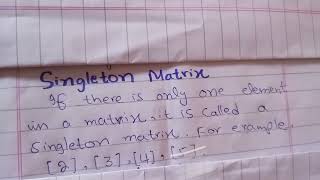 Singleton Matrix
If there is only one element
in a matrix, it is called a
Singleton matrix. For example,
[2], [3], [4], [5].